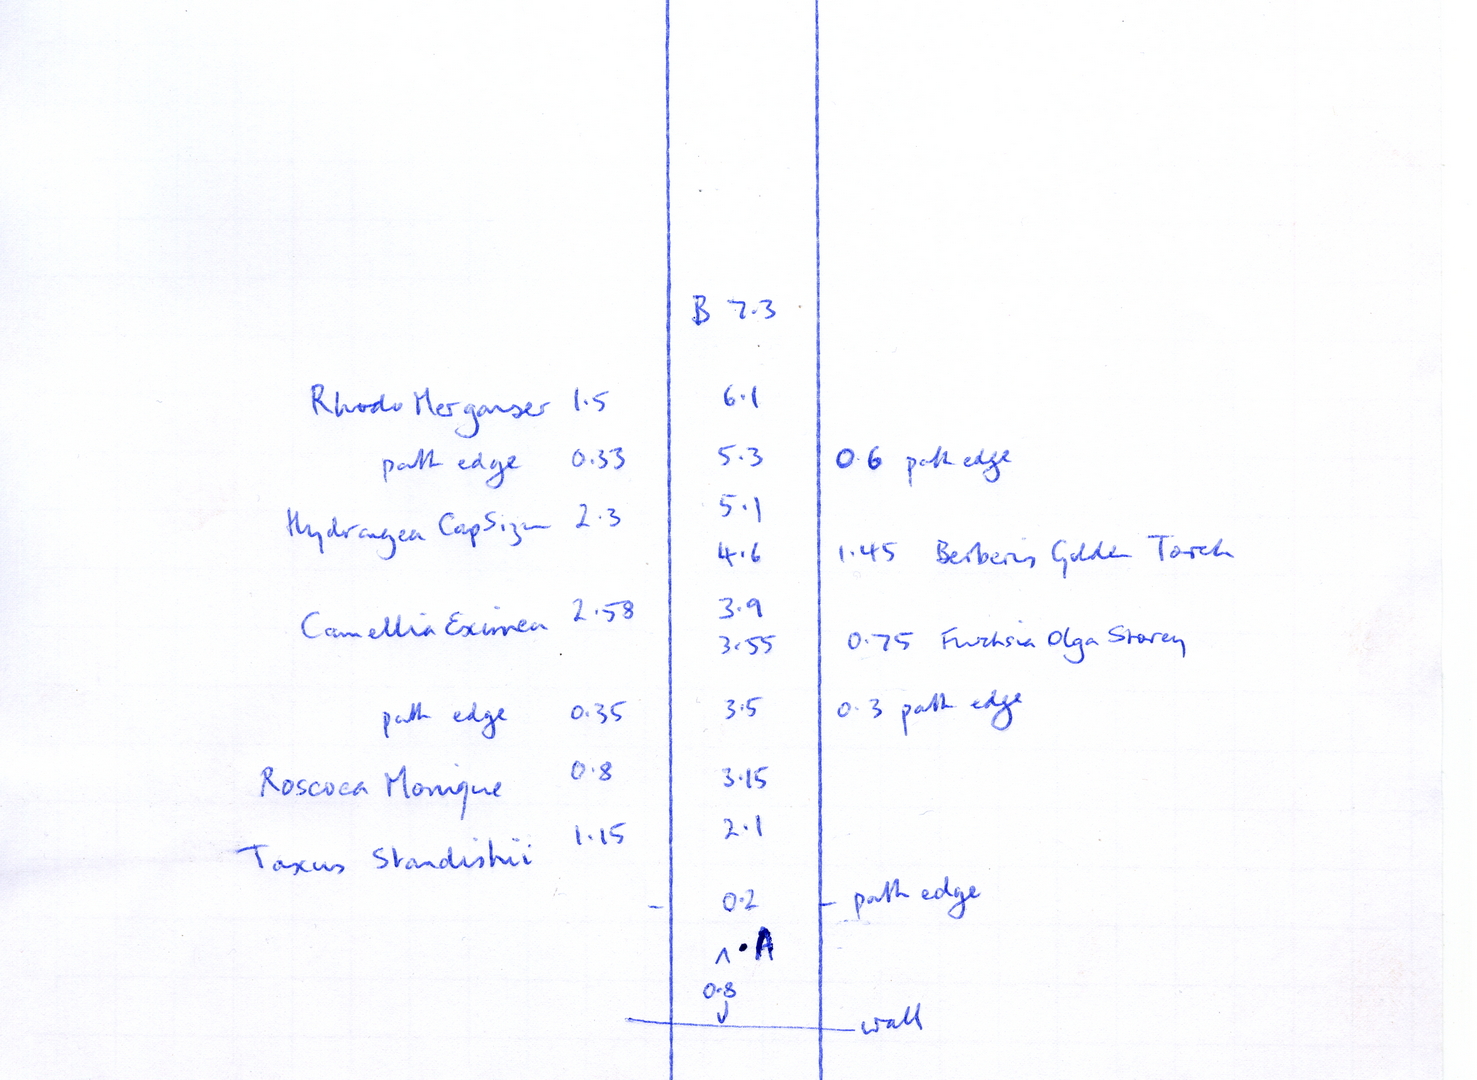 B 7.3
Rhodo Merganser 1.5 6.1
path edge 0.33 5.3 0.6 path edge
5.1
Hydrangea CapSizun 2.3
4.6 1.45 Berberis Golden Torch
Camellia Eximea 2.58 3.9
3.55 0.75 Fuchsia Olga Storey
path edge 0.35 3.5 0.3 path edge
Roscoea Monique 0.8 3.15
Taxus Standishii 1.15 2.1
0.2 path edge
A
0.8
wall